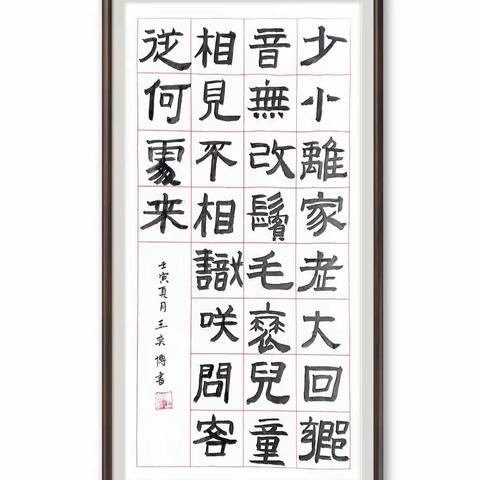 少小離家老大回鄉
音無改鬢毛衰兒童
相見不相識咲問客
従何處来
壬寅夏月王奕博書